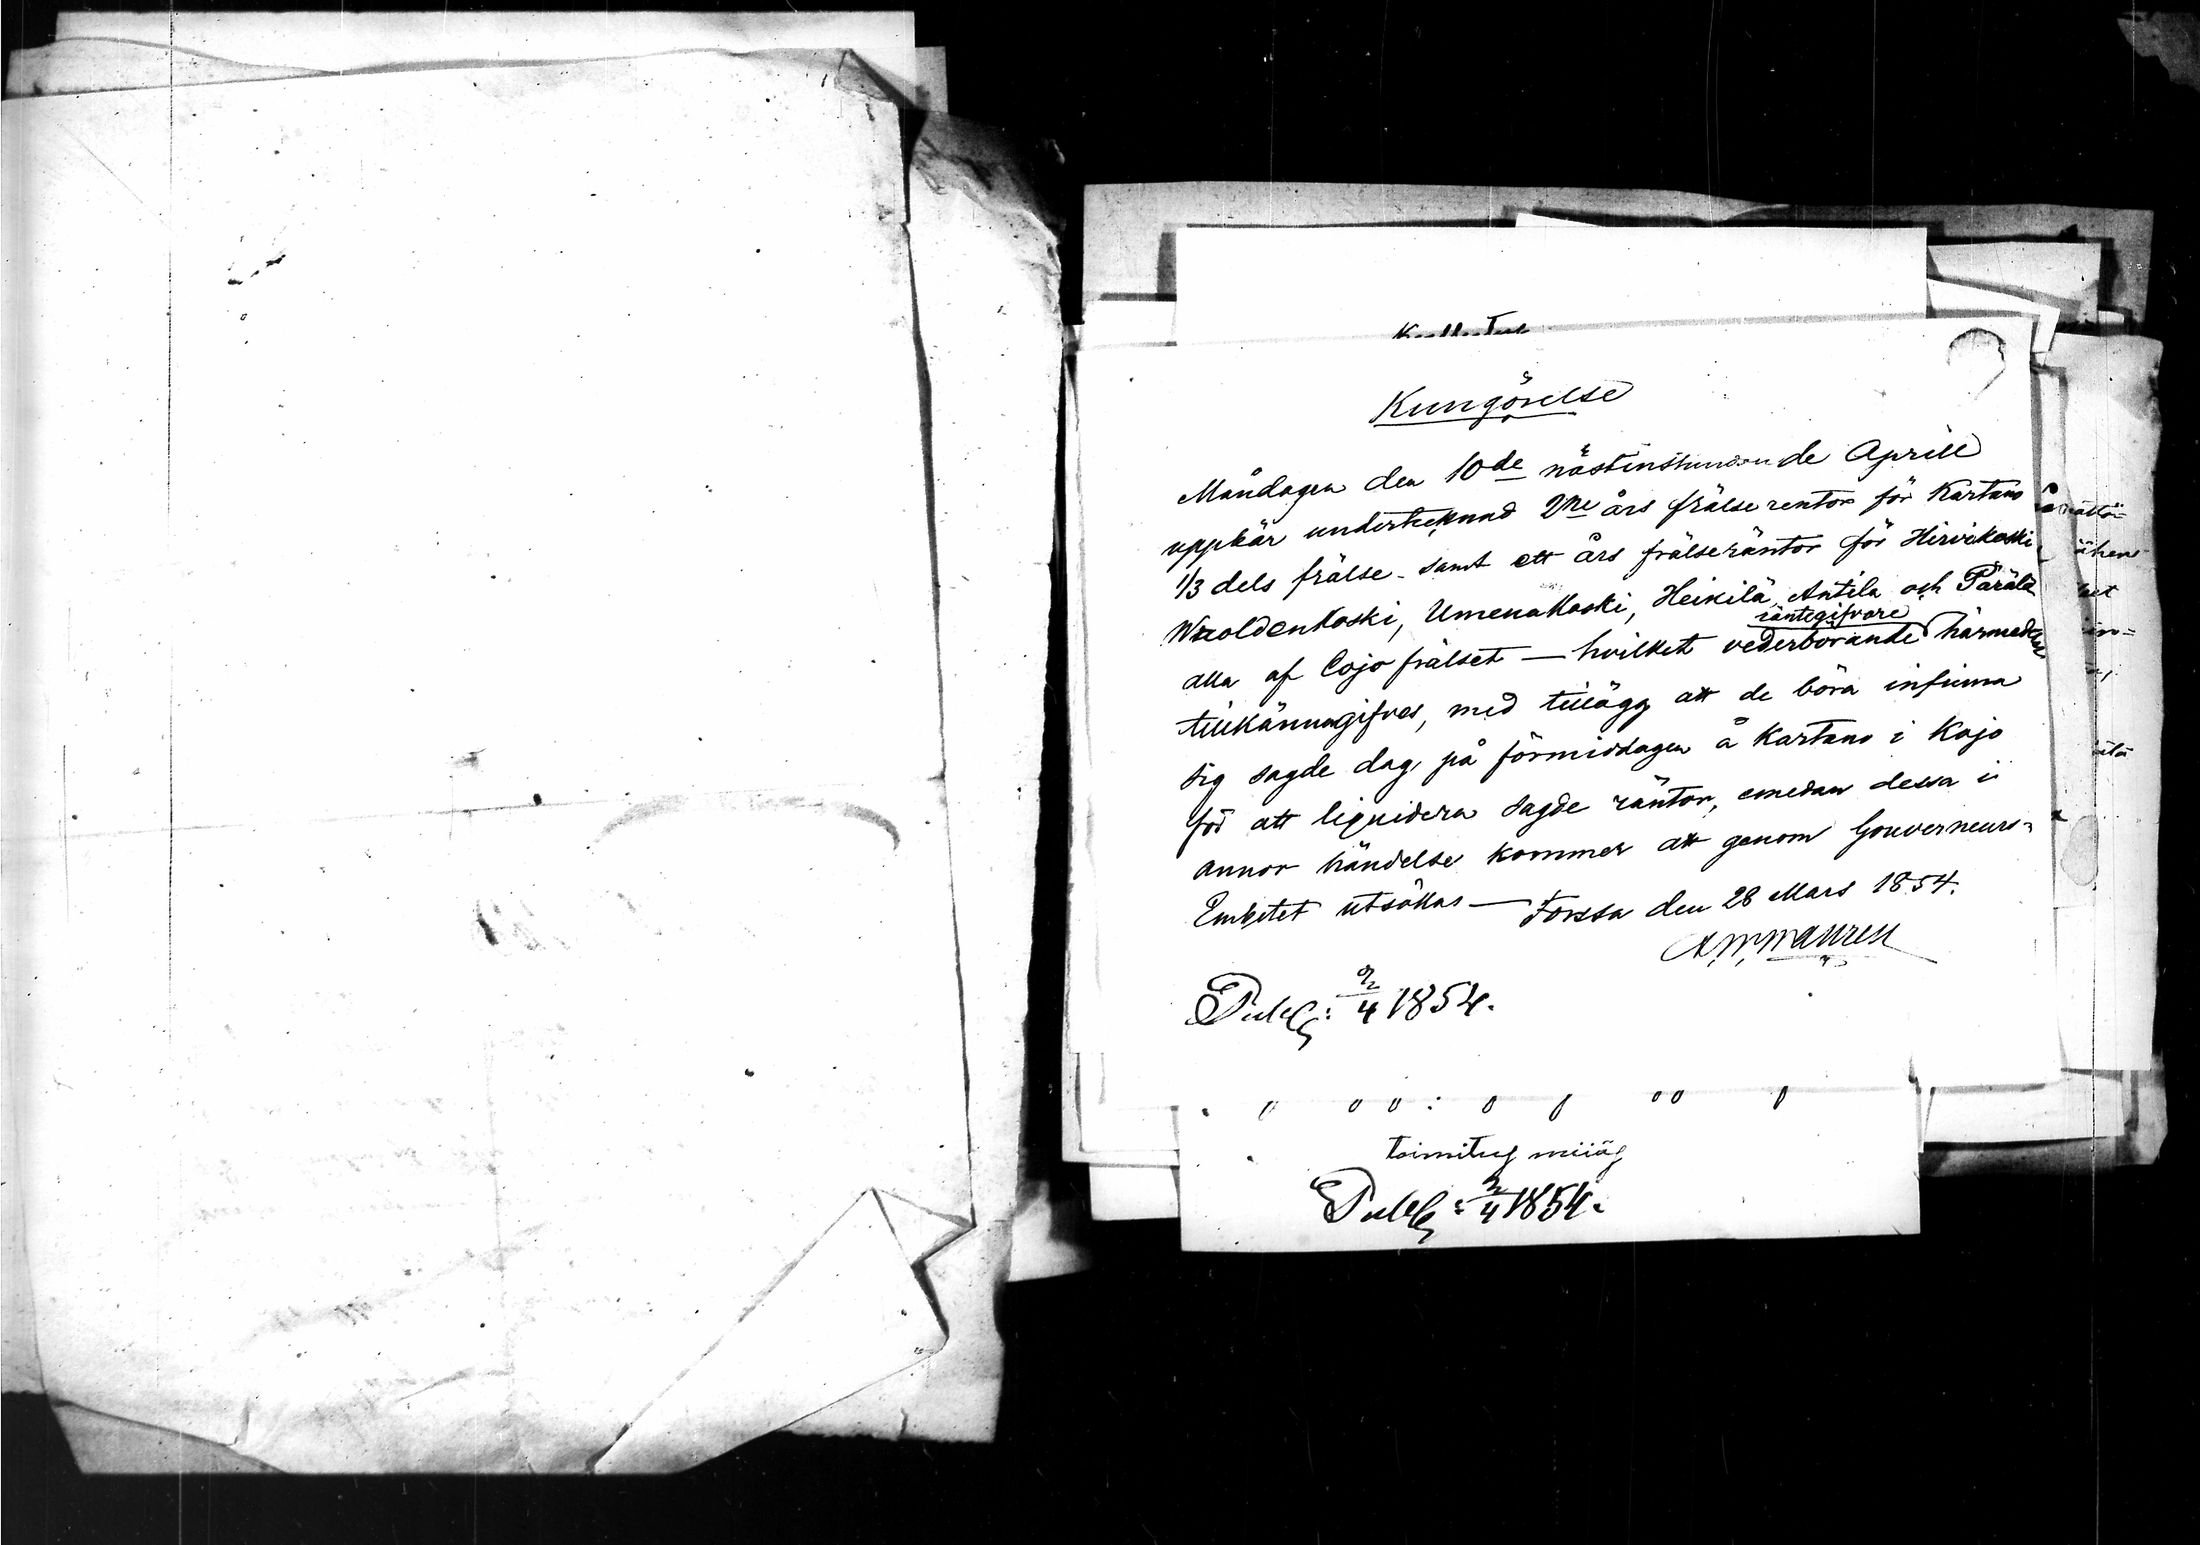 Kungörelse
Måndagen den 10de nästinstundande Aprill
uppbär undertecknad 2ne års frälse rentor för Kartano
1/3 dels frälse - samt ett års frälseräntor för Hirvikoski
Woldenkoski, Umenakoski, Heikilä, Antila och Pärälä
räntegifvare
alla af Cojo frälset — hvilket vederbörande härmedelst
tillkännagifves, med tillägg att de böra infinna
sig sagde dag på förmiddagen å Kartano i Kojo
för att liquidera sagde räntor, emedan dessa i
annor händelse kommer att genom Gouverneurs-
Embetet utsökas — Forssa den 28 Mars 1854.
Publ: 2/4 1854.
Publ: 2/4 1854.